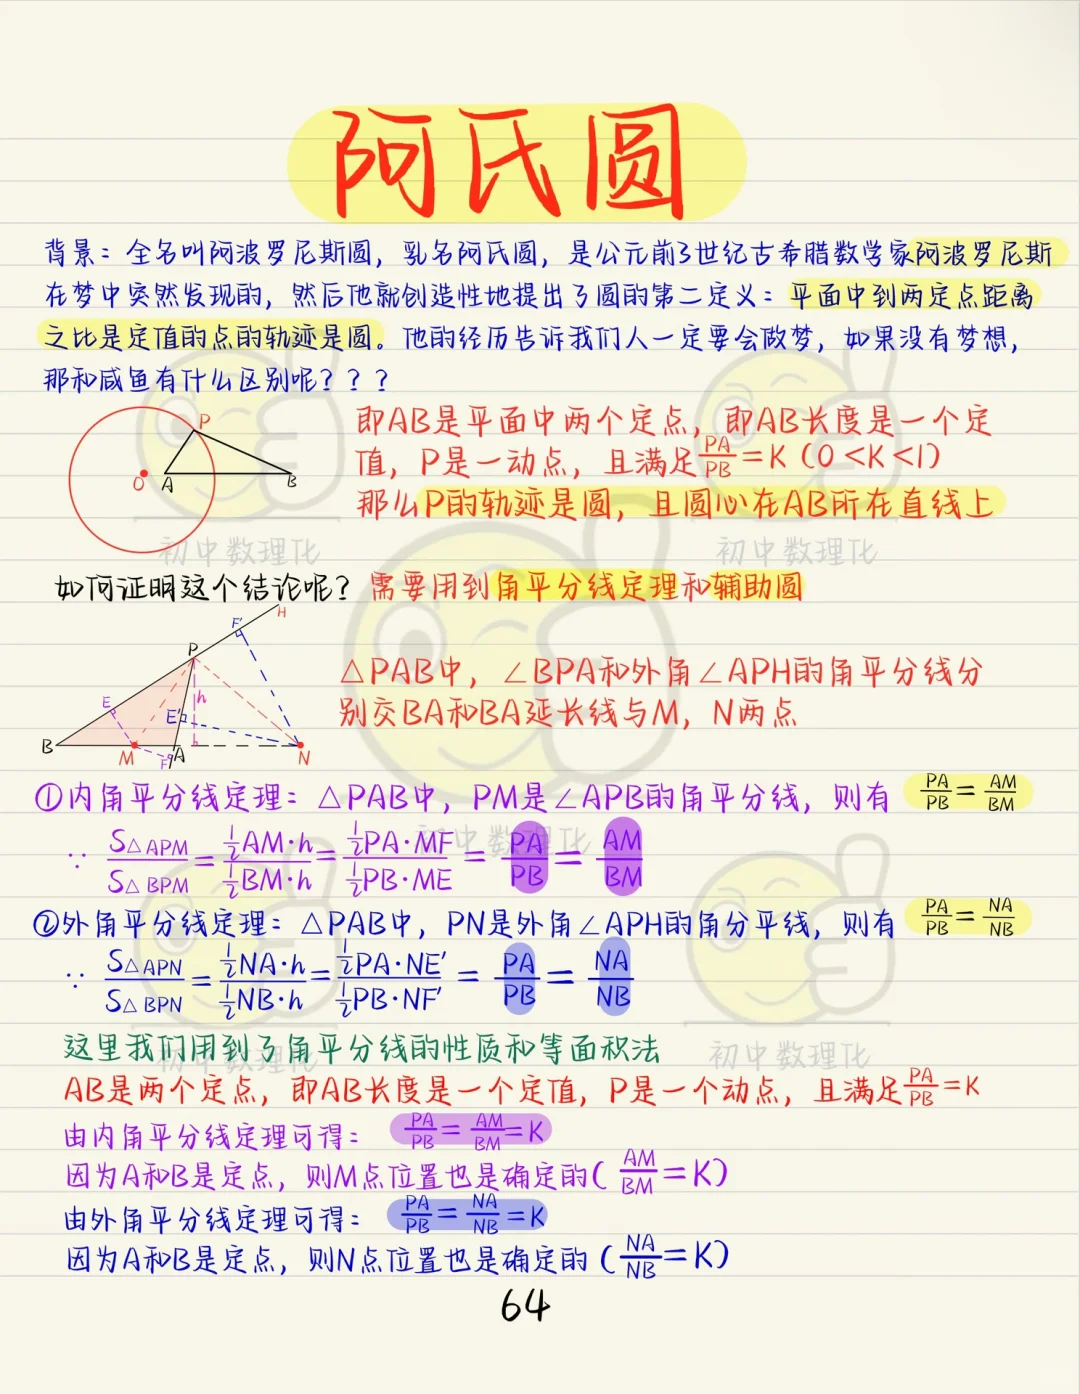 阿氏圆
背景：全名叫阿波罗尼斯圆，乳名阿氏圆，是公元前3世纪古希腊数学家阿波罗尼斯
在梦中突然发现的，然后他就创造性地提出了圆的第二定义：平面中到两定点距离
之比是定值的点的轨迹是圆。他的经历告诉我们人一定要会做梦，如果没有梦想，
那和咸鱼有什么区别呢？？？
P
O A B
即AB是平面中两个定点，即AB长度是一个定
值，P是一动点，且满足PA/PB=K（0<K<1）
那么P的轨迹是圆，且圆心在AB所在直线上
初中数理化 初中数理化
如何证明这个结论呢？需要用到角平分线定理和辅助圆
H
F'
P
E h
E'
B M A N
F
△PAB中，∠BPA和外角∠APH的角平分线分
别交BA和BA延长线与M，N两点
①内角平分线定理：△PAB中，PM是∠APB的角平分线，则有 PA/PB=AM/BM
初中数理化
∵ S△APM/S△BPM=½AM·h/½BM·h=½PA·MF/½PB·ME=PA/PB=AM/BM
②外角平分线定理：△PAB中，PN是外角∠APH的角分平线，则有 PA/PB=NA/NB
∵ S△APN/S△BPN=½NA·h/½NB·h=½PA·NE'/½PB·NF'=PA/PB=NA/NB
这里我们用到了角平分线的性质和等面积法
初中数理化 初中数理化
AB是两个定点，即AB长度是一个定值，P是一个动点，且满足PA/PB=K
由内角平分线定理可得：PA/PB=AM/BM=K
因为A和B是定点，则M点位置也是确定的（AM/BM=K）
由外角平分线定理可得：PA/PB=NA/NB=K
因为A和B是定点，则N点位置也是确定的（NA/NB=K）
64